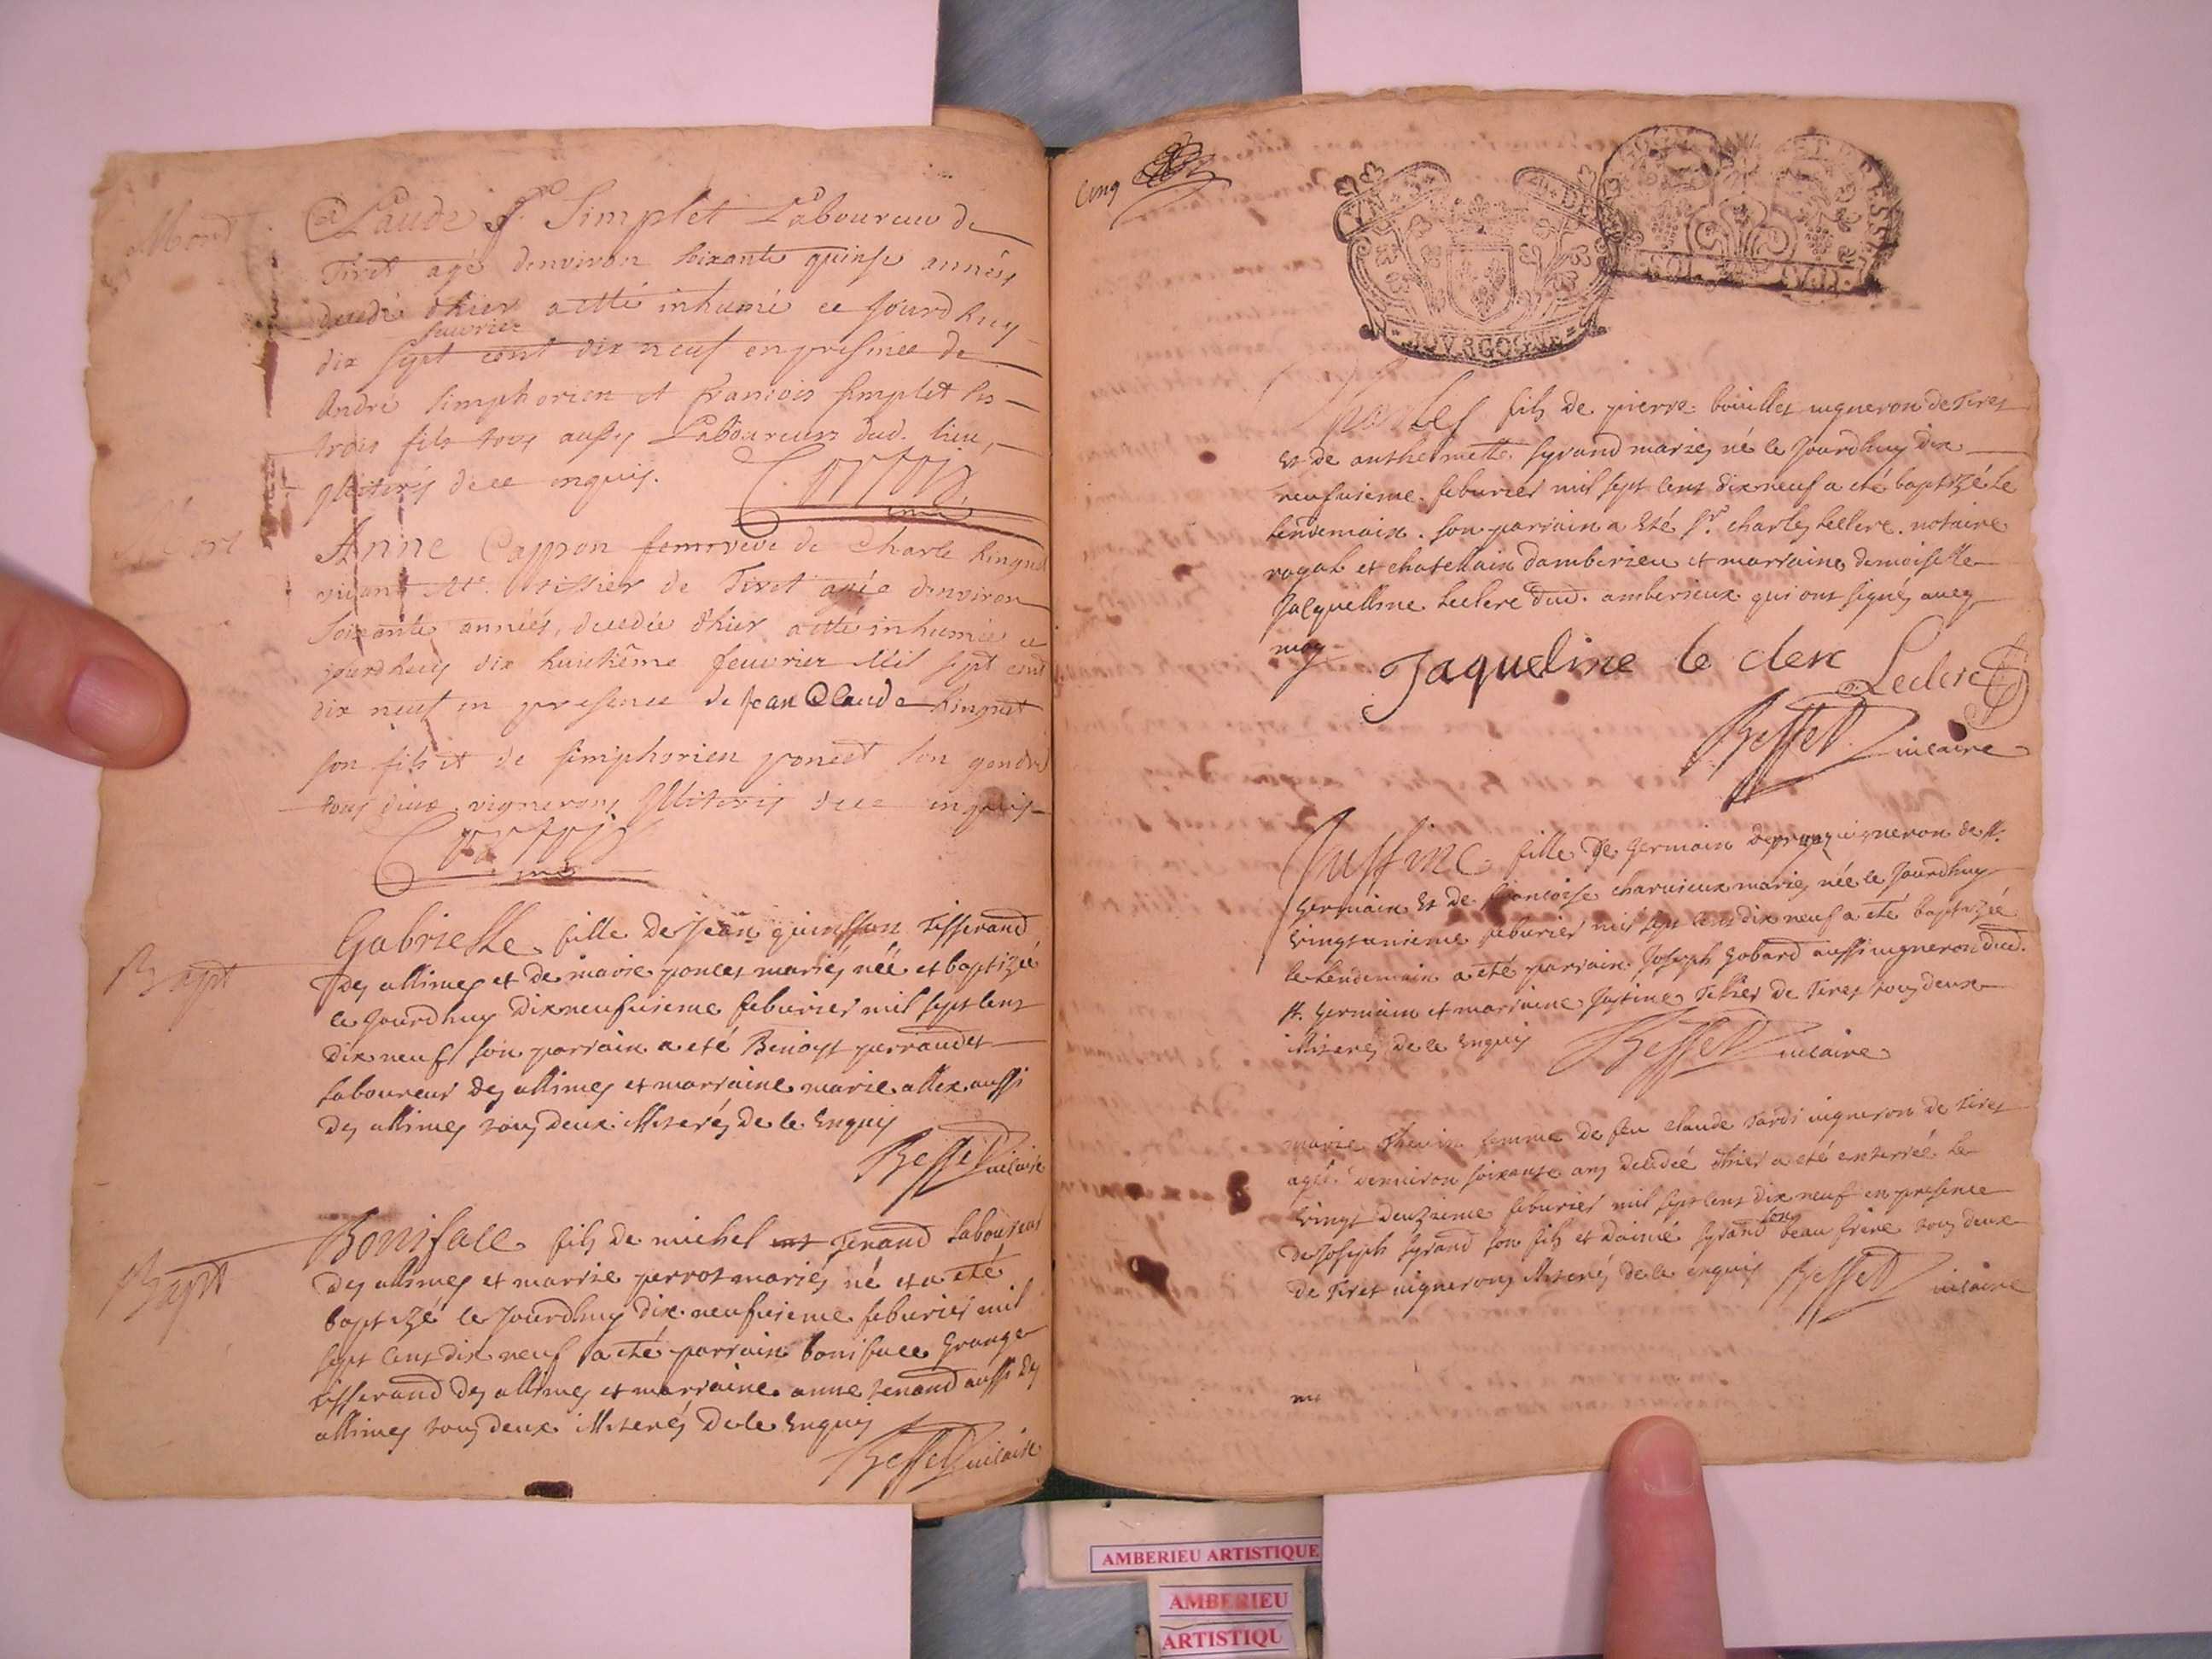 Mort
Claude f. Simplet Laboureur de
Tiret agé denviron soixante quinse années
decedé d'hier a etté inhumé ce jourdhuy
feuvrier
dix sept cent dix neuf en presence de
André simphorien et francois simplet ses
trois fils tous aussy Laboureurs dud. lieu,
illiterés de ce enquis.
Mort
Anne Cappon vefve de Charle Ringuet
vivant Me. tissier de Tiret agée denviron
soixante années, decedée d'hier a etté inhumée ce
jourdhuy dix huictième feuvrier Mil sept cent
dix neuf en presence de jean Claude Ringuet
son fils et de simphorien poncet son gendre
tous deux vignerons illiterés de ce enquis
Bapt
Gabrielle fille de Jean quinsson Tisserand
des allimes et de marie poncet mariés née et baptizée
ce Jourdhuy dixneufuieme feburier mil sept cent
dix neuf son parrain a eté Benoist perraudet
Laboureur des allimes et marraine marie allex aussi
des allimes tous deux illiterés de ce Enquis
Besset vicaire
Bapt
Boniface fils de michel Tenand Laboureur
des allimes et marie perrot mariés né et a eté
baptizé ce Jourdhuy dix neufuieme feburier mil
sept cent dix neuf a eté parrain boniface Grange
tisserand des allimes et marraine anne tenand aussi des
allimes tous deux illiterés de ce Enquis
Besset vicaire
Cinq
VN DE
BOVRGOGNE
SOL
Charles fils de pierre bouillet uigneron de Tiret
et de anthelmette syrand mariés né le Jourdhuy dix
neufuieme feburier mil sept cent dix neuf a eté baptizé le
lendemain. son parrain a Eté Sr. charles Leclerc notaire
royal et chatellain damberieu et marraine demoiselle
Jacquelline Leclerc dud. amberieux qui ont signés auec
moy
Jaqueline le clerc
Leclerc
Besset vicaire
Justine fille de Germain uigneron de st.
Germain et de francoise charuieux mariés née le Jourdhuy
vingtunieme feburier mil sept cent dix neuf a eté baptizée
le lendemain a eté parrain Joseph Gobard aussi uigneron dud.
st. Germain et marraine Justine Tissier de Tiret tous deux
illiterés de ce Enquis
Besset vicaire
marie Thevin femme de feu claude tardi uigneron de tiret
agée denuiron soixante ans decedée d'hier a eté enterrée le
vingt deuzieme feburier mil sept cent dix neuf en presence
de Joseph syrand son fils et daimé syrand son beau frere tous deux
de tiret uignerons illiterés de ce enquis
Besset vicaire
AMBERIEU ARTISTIQUE
AMBERIEU
ARTISTIQU